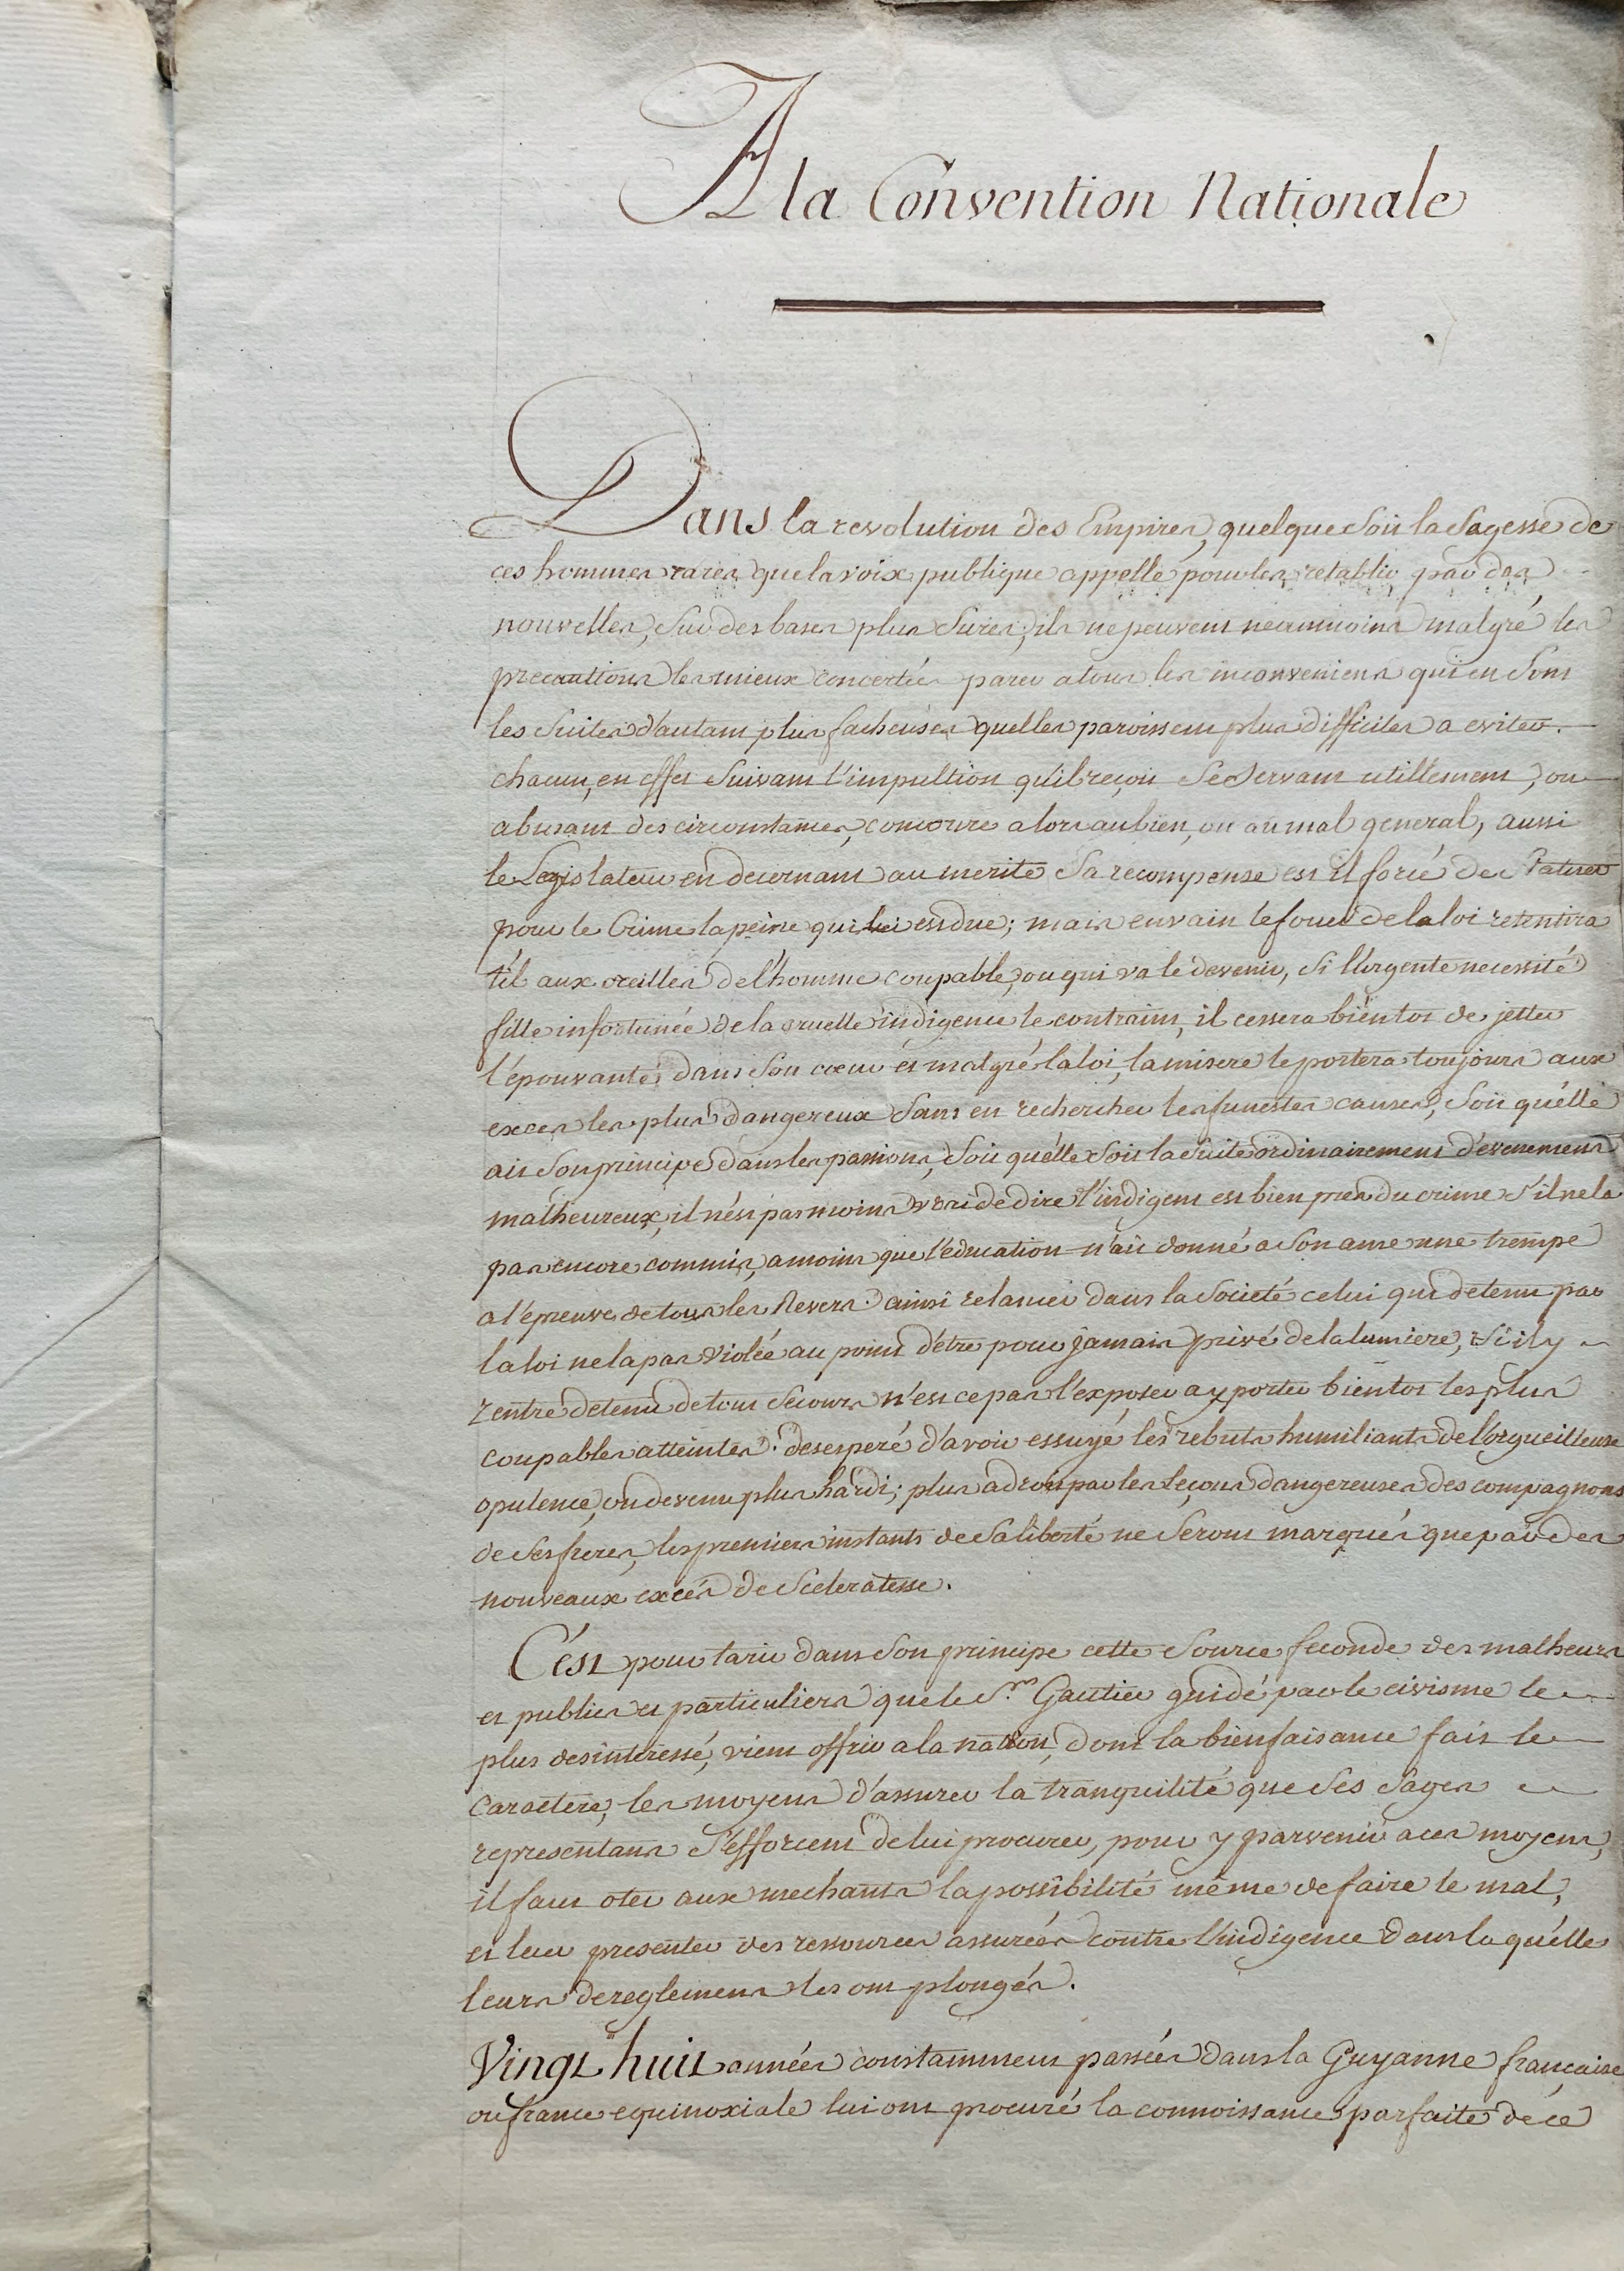 A la Convention Nationale
Dans la revolution des Empires, quelque soit la sagesse de
ces hommes rares que la voix publique appelle pour les retablir par des
nouvelles, sur des bases plus sures, ils ne peuvent neanmoins malgré les
precautions les mieux concertées parer a tous les inconveniens qui en sont
les suites d'autant plus facheuses quelles paroissent plus difficiles a eviter.
chacun, en effet suivant l'impultion qu'il reçoit se servant utillement, ou
abusant des circonstances, concourre alors au bien, ou au mal general, aussi
le Legislateur en decernant au merite sa recompense est il forcé de statuer
pour le Crime la peine qui lui est due; mais en vain le fouet de la loi retentira
t'il aux oreilles de l'homme coupable, ou qui va le devenir, si l'urgente necessité
fille infortunée de la cruelle indigence le contraint, il cessera bientot de jetter
l'épouvante, dans son cœur et malgré la loi, la misere le portera toujours aux
exces les plus dangereux sans en rechercher les funestes causes, soit qu'elle
ait son principe dans les passions, soit qu'elle soit la suite ordinairement d'evenemens
malheureux, il n'est pas moins vrai de dire l'indigent est bien pres du crime s'il ne la
pas encore commis, a moins que l'education n'ait donné a son ame une trempe
a l'épreuve de tous les Revers. ainsi relancer dans la societé celui qui detenu par
la loi ne la pas violée au point d'être pour jamais privé de la lumiere, s'il y
rentre detenu de tout secours n'est ce pas l'exposer a y porter bientot les plus
coupables atteintes. desesperé d'avoir essuyé les rebuts humiliants de l'orgueilleuse
opulence, ou devenu plus hardi; plus adroit par les leçons dangereuses des compagnons
de ses freres, les premiers instants de sa liberté ne seront marqués que par des
nouveaux excès de sceleratesse.
C'est pour tarir dans son principe cette source feconde des malheurs
et publics et particuliers que le S.r Gautier guidé par le civisme le
plus desinteressé, vient offrir a la nation, dont la bienfaisance fait le
caractere, les moyens d'assurer la tranquilité que ses sages
representans s'efforcent de lui procurer, pour y parvenir a ces moyens,
il faut oter aux mechants la possibilité même de faire le mal,
et leur presenter des ressources assurées contre l'indigence dans la quélle
leurs dereglemens les ont plongés.
Vingt huit années constamment passées dans la Guyanne francaise
ou france equinoxiale lui ont procuré la connoissance parfaite de cé